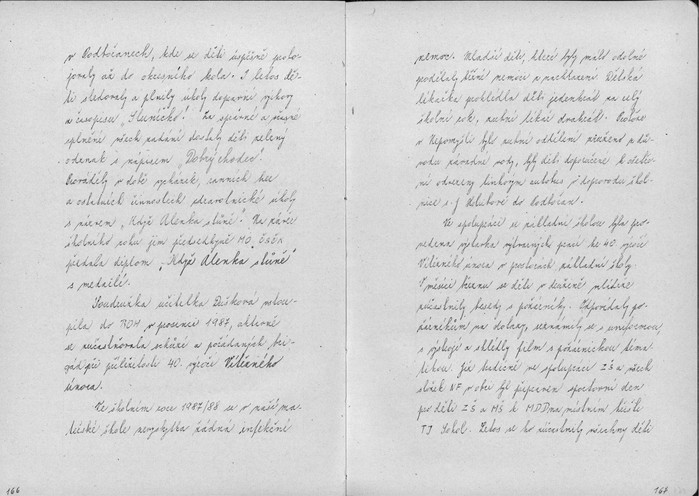 v Podbořanech, kde se děti úspěšně probo-
jovaly až do okresního kola. I letos dě-
ti sledovaly a plnily úkoly dopravní výchovy
v časopisu „Sluníčko". Za správné a včasné
splnění všech zadání dostaly děti zelený
odznak s nápisem „Dobrý chodec".
Prováděly v době vycházek, ranních her
a ostatních činnostech zdravotnické úkoly
s názvem „Když Alenka stůně". Na závěr
školního roku jim předsedkyně MO ČSČK
předala diplom „Když Alenka stůně"
s medailí.
Soudružka učitelka Dušková vstou-
pila do ROH v prosinci 1987, aktivně
se zúčastňovala schůzí a pořádaných bri-
gád při příležitosti 40. výročí Vítězného
února.
Ve školním roce 1987/88 se v naší ma-
teřské škole nevyskytla žádná infekční
166
nemoc. Mladší děti, které byly málo odolné
podléhaly běžné nemoci z nachlazení. Dětská
lékařka prohlédla děti jedenkrát za celý
školní rok, zubní lékař dvakrát. Protože
v Nepomyšli bylo zubní oddělení zrušeno z dů-
vodu závadné vody, byly děti doporučené k ošetře-
ní odvezeny linkovým autobusem v doprovodu škol-
nice s. Holubové do Podbořan.
Ve spolupráci se základní školou byla pro-
vedena výstavka výtvarných prací ke 40. výročí
Vítězného února v prostorách základní školy.
V měsíci březnu se děti v družině mládeže
zúčastnily besedy s požárníky. Odpovídaly po-
žárníkům na dotazy, seznámily se s uniformou,
s výstrojí a shlédly film s požárnickou téma-
tikou. Již tradičně ve spolupráci ZŠ a všech
složek NF v obci byl připraven sportovní den
pro děti ZŠ a MŠ k MDD na místním hřišti
TJ Sokol. Letos se ho zúčastnily všechny děti
167